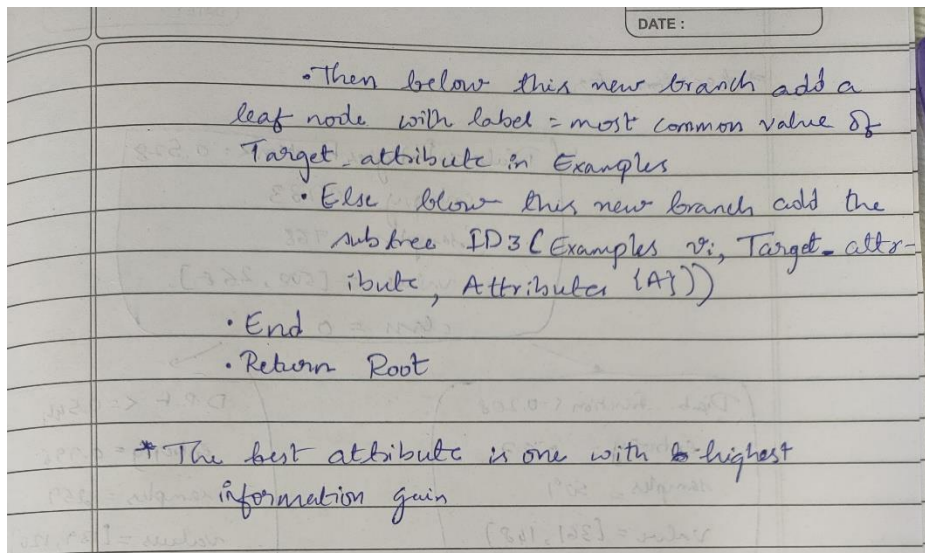 DATE :
• Then below this new branch add a
leaf node with label = most common value of
Target_attribute in Examples
• Else blow this new branch add the
subtree ID3 ( Examples vi, Target_attr-
ibute, Attributes {A}))
• End
• Return Root
* The best attribute is one with highest
information gain